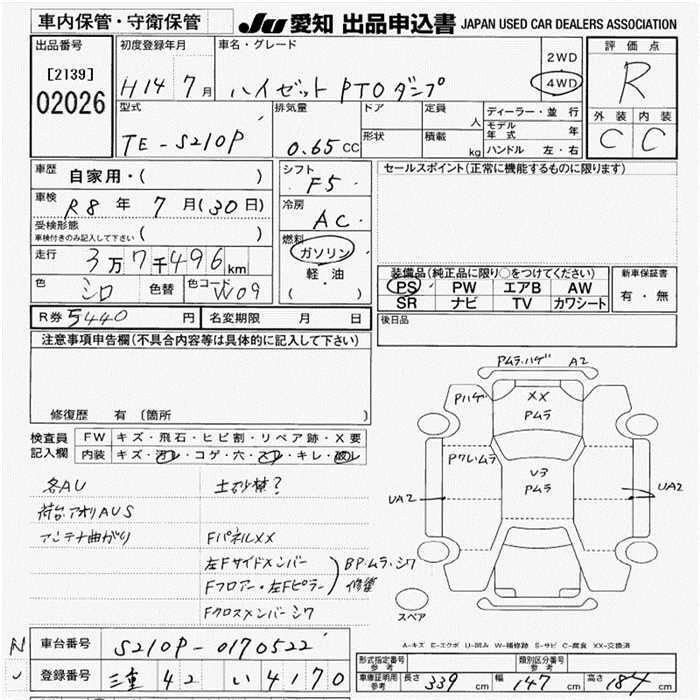 車内保管・守衛保管
JU 愛知 出品申込書 JAPAN USED CAR DEALERS ASSOCIATION
出品番号
[2139]
02026
初度登録年月
H14 7月
車名・グレード
ハイゼット PTOダンプ
2WD
4WD
評価点
R
外装 内装
C C
型式
TE-S210P
排気量
0.65 CC
ドア
形状
定員
人
積載
kg
ディーラー・並行
モデル年式 年
ハンドル 左・右
車歴
自家用・( )
車検
R8年 7月(30日)
受検形態
車検付きのみ記入して下さい ( )
走行
3万7千496km
色
シロ
色替
色コード
W09
シフト
F5
冷房
AC
燃料
ガソリン
軽・油
( )
セールスポイント(正常に機能するものに限ります)
装備品(純正品に限り○をつけてください)
PS PW エアB AW
SR ナビ TV カワシート
新車保証書
有・無
R券 5440 円
名変期限 月 日
後日品
注意事項申告欄(不具合内容等は具体的に記入して下さい)
修復歴 有 〔箇所 〕
検査員
記入欄
FW キズ・飛石・ヒビ割・リペア跡・X要
内装 キズ・汚レ・コゲ・穴・スレ・キレ・破レ
各AU
土砂禁?
荷台.アオリAUS
アンテナ曲がり
FパネルXX
左Fサイドメンバー
Fフロアー・左Fピラー
BP.ムラ.シワ
修墜
Fクロスメンバーシワ
Pムラ.ハゲ A2
Pハゲ
XX
Pムラ
Pワレ.ムラ
U3
Pムラ
UA2
UA2
スペア
A-キズ E-エクボ U-凹み W-補修跡 S-サビ C-腐食 XX-交換済
車台番号
S210P-0170522
登録番号
三重 42 い 4170
形式指定番号
参考
類別区分番号
参考
車庫証明用
参考
長さ 339 cm
幅 147 cm
高さ 184 cm